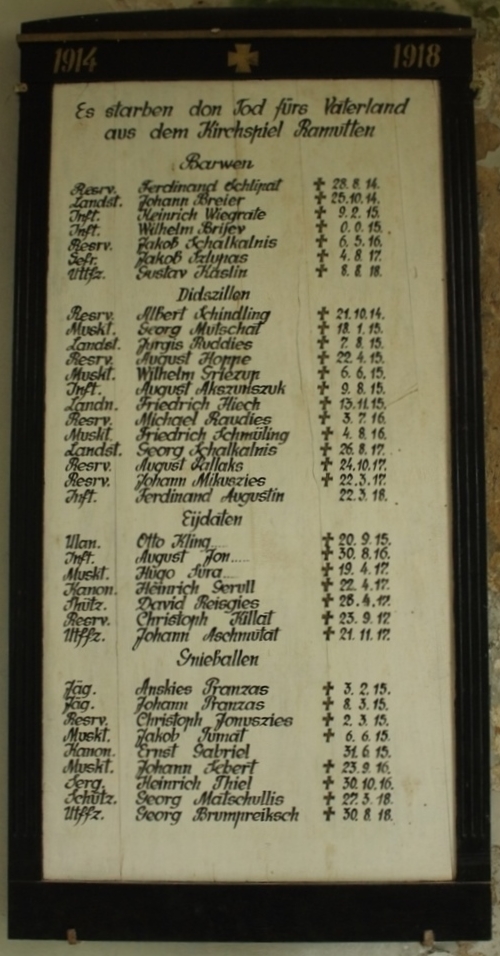 1914 1918
Es starben den Tod fürs Vaterland
aus dem Kirchspiel Ramutten
Barwen
Resrv. Ferdinand Schlipat ✝ 28. 8. 14.
Landst. Johann Breier ✝ 25.10.14.
Inft. Heinrich Wiegrate ✝ 9. 2. 15.
Inft. Wilhelm ✝ 0. 0. 15.
Resrv. Jakob Schalkalnis ✝ 6. 5. 16.
Gefr. Jakob Szlupas ✝ 4. 8. 17.
Utffz. Gustav Käslin ✝ 8. 8. 18.
Didszillen
Resrv. Albert Schindling ✝ 21.10.14.
Muskt. Georg Mutschat ✝ 18. 1. 15.
Landst. Jurgis Ruddies ✝ 7. 8. 15.
Resrv. August Hoppe ✝ 22. 4. 15.
Muskt. Wilhelm Griezup ✝ 6. 6. 15.
Inft. August Akszunszuk ✝ 9. 8. 15.
Landn. Friedrich Hiech ✝ 13.11.15.
Resrv. Michael Raudies ✝ 3. 7. 16.
Muskt. Friedrich Schmüling ✝ 4. 8. 16.
Landst. Georg Schalkalnis ✝ 26. 8. 17.
Resrv. August Pallaks ✝ 24.10.17.
Resrv. Johann Mikuszies ✝ 22. 3. 17.
Inft. Ferdinand Augustin 22. 3. 18.
Eijdaten
Ulan. Otto Kling ✝ 20. 9. 15.
Inft. August Jon..... ✝ 30. 8. 16.
Muskt. Hugo Jura ✝ 19. 4. 17.
Kanon. Heinrich Serull ✝ 22. 4. 17.
Schütz. David Reisgies ✝ 28. 4. 17.
Resrv. Christoph Killat ✝ 23. 9. 17.
Utffz. Johann Aschmutat ✝ 21. 11. 17.
Gnieballen
Jäg. Anskies Pranzas ✝ 3. 2. 15.
Jäg. Johann Pranzas ✝ 8. 3. 15.
Resrv. Christoph Jonuszies ✝ 2. 3. 15.
Muskt. Jakob Pumat ✝ 6. 6. 15.
Kanon. Ernst Gabriel 31. 6. 15.
Muskt. Johann Ecbert ✝ 23. 9. 16.
Serg. Heinrich Thiel ✝ 30. 10. 16.
Schütz. Georg Matschullis ✝ 27. 3. 18.
Utffz. Georg Brumpreiksch ✝ 30. 8. 18.